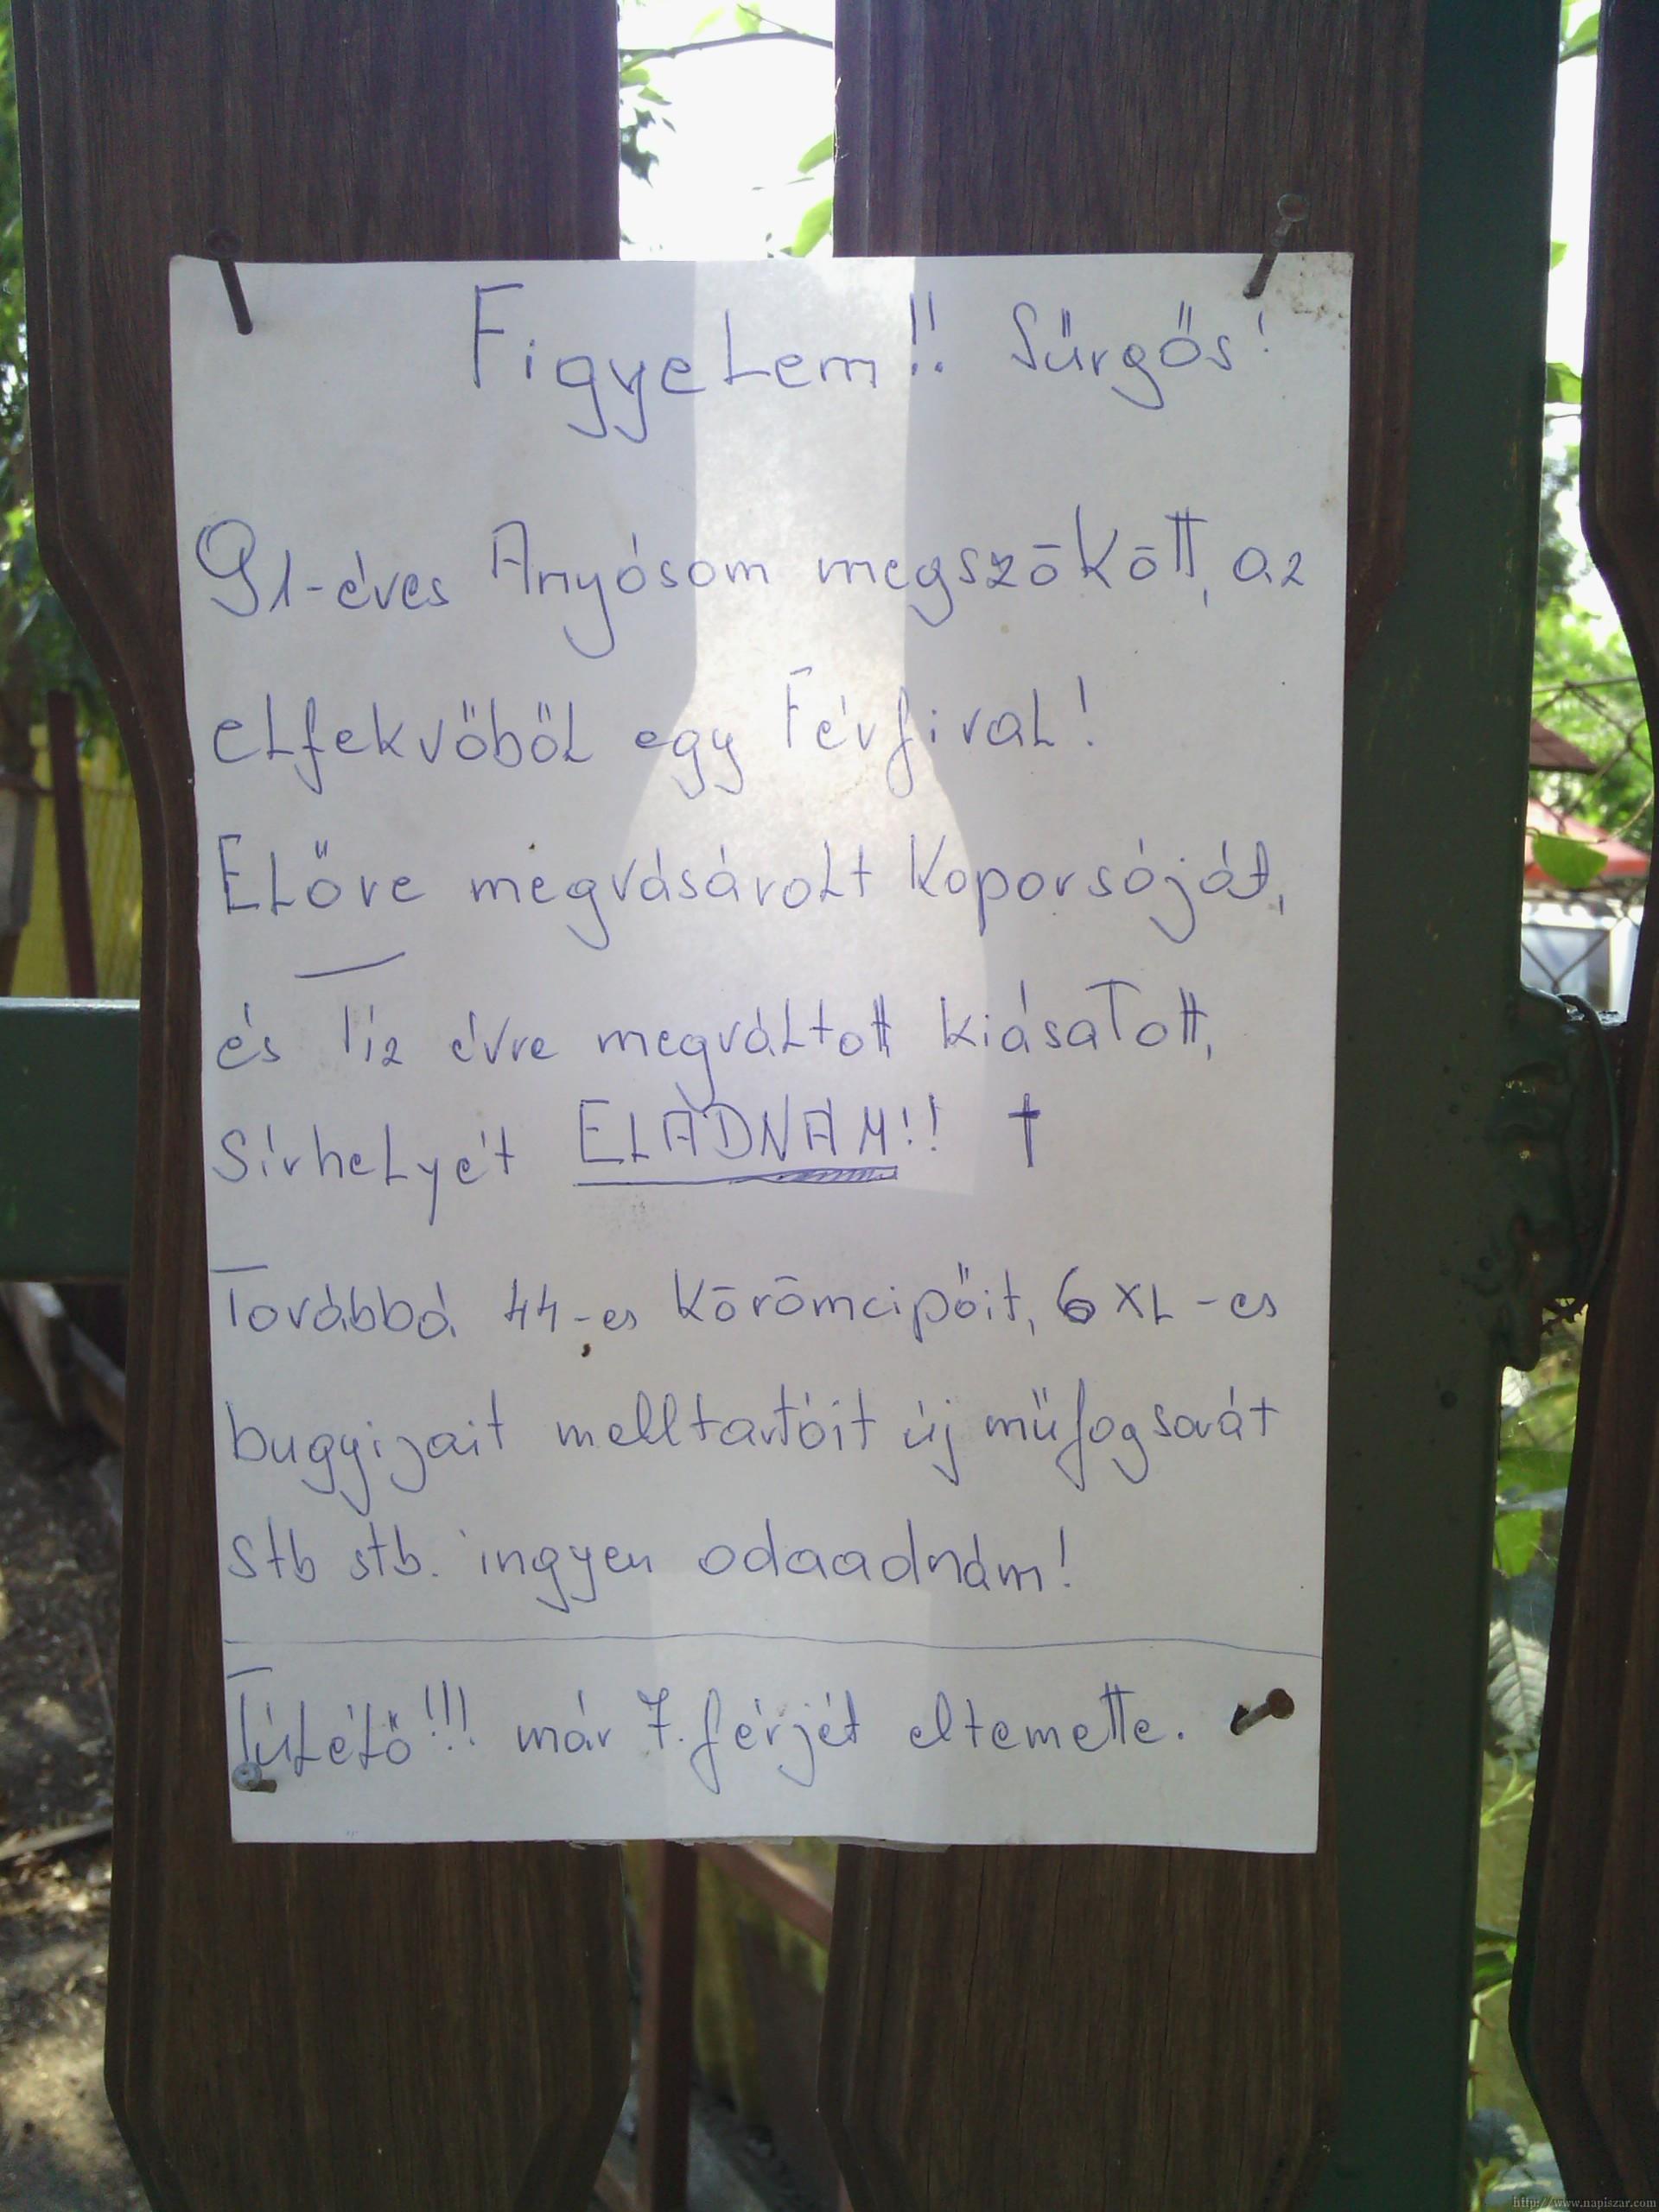 Figyelem!! Sürgős!
91-éves Anyósom megszökött, az
elfekvőből egy Férfival!
Előre megvásárolt Koporsóját,
és Tíz évre megváltott kiásatott,
Sírhelyét ELADNÁM!! †
Továbbá 44-es Körömcipőit, 6XL-es
bugyijait melltartóit új műfogsorát
stb stb. ingyen odaadnám!
Túlélő!!! már 7. férjét eltemette.
http://www.napiszar.com